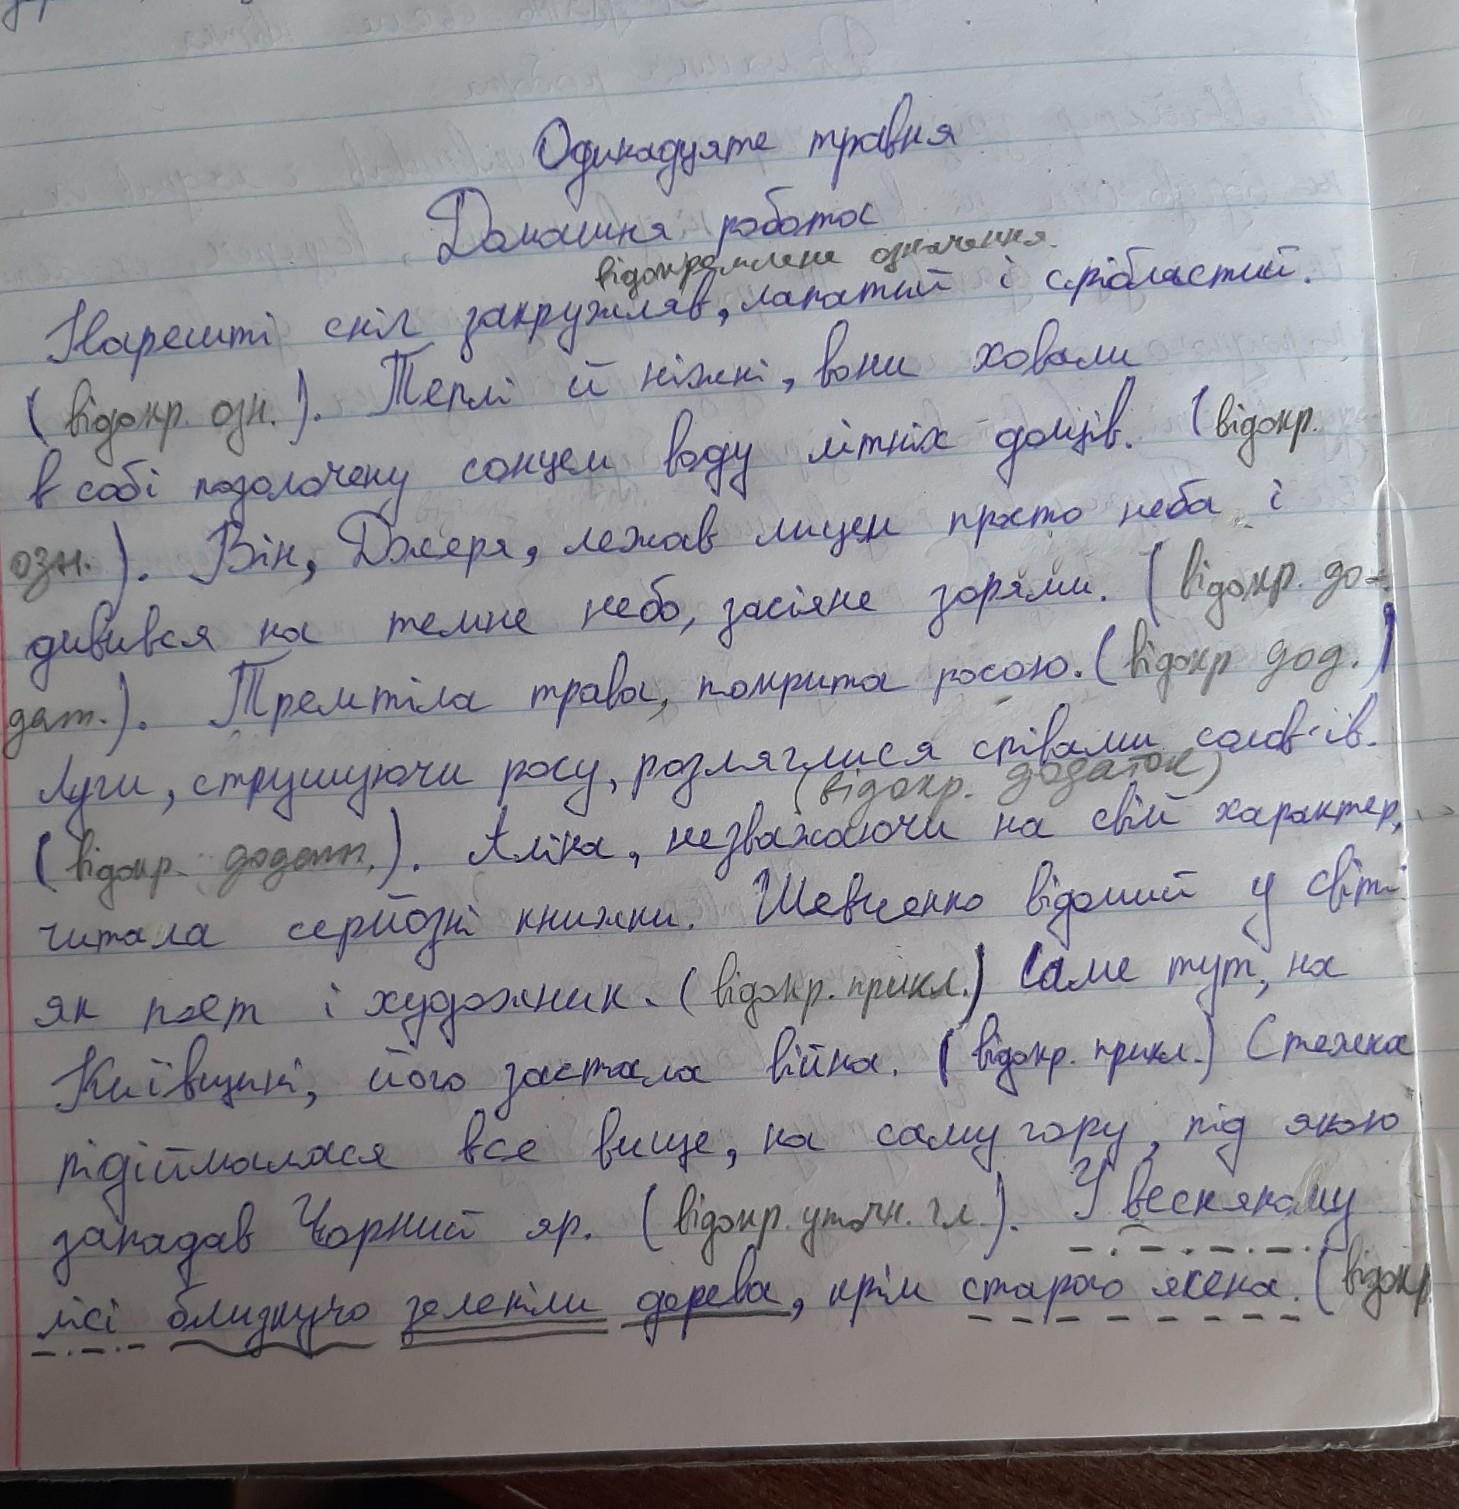 Одинадцяте травня
Домашня робота
відокремлене означення.
Нарешті сніг закружляв, лапатий і сріблястий.
(відокр. озн.). Теплі й ніжні, вони ховали
в собі позолочену сонцем воду літніх дощів. (відокр.
озн.). Він, Джеря, лежав лицем просто неба і
дивився на темне небо, засіяне зорями. (відокр. до-
дат.). Тремтіла трава, покрита росою. (відокр дод.)
Луги, струшуючи росу, розляглися співами солов'їв.
(відокр. додаток)
(відокр. додатк.). Аліна, незважаючи на свій характер,
читала серйозні книжки. Шевченко відомий у світі
як поет і художник. (відокр. прикл.) Саме тут, на
Київщині, його застала війна. (відокр. прикл.) Стежка
підіймалася все вище, на саму гору, під якою
западав Чорний яр. (відокр. уточн. гл.). У весняному
лісі близкучо зеленіли дерева, крім старого ясена. (відокр.